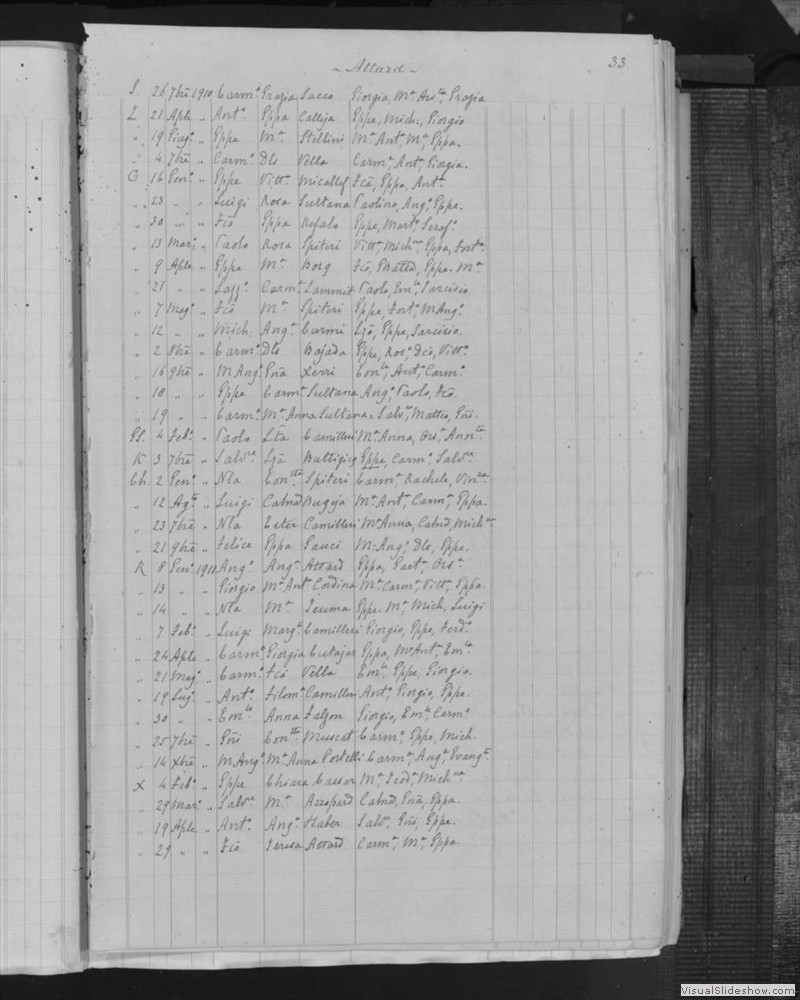 ~ Attard ~ 33
S. 26 7bre 1910 Carm.o Grazia Sacco Giorgia, M.a Ass.ta, Grazia
Z 21 Aple " Ant.o Gppa Calleja Gppe, Mich:, Giorgio
" 19 Giug.o " Gppe M.a Stellini M.a Ant.a, M.a Gppa.
" 4 7bre " Carm.o Dle Vella Carm.a Ant.o, Giorgia.
G 16 Gen.o " Gppe Vitt.a Micallef Fca, Gppa, Ant.o
" 23 " " Luigi Rosa Sultana Paolino, Ang.o, Gppe.
" 30 " " Fco Gppa Refalo Gppe, Mart.a,
" 13 Mar: " Paolo Rosa Spiteri Vitt.a, Mich.na, Gppa, Fort.a
" 9 Aple " Gppe M.a Borg Fco, Gppa. M.a
" 21 " " Lazz.o Carm.a Sammut Paolo, Em.le, Tarcisio.
" 7 Mag.o " Fco M.a Spiteri Gppe, Fort.o, M Ang.o
" 12 " " Mich. Ang.a Curmi Gppe, Tarcisio.
" 2 8bre " Carm.o Dle Bajada Gppe, Ros.a, Vitt.o
" 16 9bre " M Ang.o Gna Xerri Em.le, Ant.o, Carm.o
" 18 " " Gppe Carm.a Sultana Ang.o, Paolo, Fco.
" 19 " " Carm.o M.a Anna Sultana Salv.e, Matteo, Gni.
4 Feb.o " Paolo Camilleri M.a Anna,
K 3 7bre " Salv.re Buttigieg Gppe, Carm.o, Salv.re
Ch. 2 Gen.o " Nla Con.tta Spiteri Carm.a Rachela, Vin.za
" 12 Ag.to " Luigi Catnd Bugeja M.a Ant.a, Carm.a, Gppa.
" 23 7bre " Nla Ester Camilleri M.a Anna, Catnd, Mich.na
" 21 9bre " Felice Gppa Gauci M. Ang.a, Dle, Gppe.
R 8 Gen.o 1911 Ang.o Ang.a Attard Gppa, Gaet.o,
" 13 " " Giorgio M.a Ant.a Cordina M.a Carm.a, Vitt.a, Gppa.
" 14 " " Nla M.a Teuma Gppe. M.a, Mich, Luigi
" 7 Feb.o " Luigi Marg.a Camilleri Giorgio, Gppe, Ferd.o
" 24 Aple " Carm.o Giorgia Cutajar Gppa, M.a Ant.a, Em.la
" 21 Mag.o " Carm.o Fca Vella Em.la, Gppe, Giorgia.
" 19 Lug.o " Ant.o Filom.a Camilleri Ant.o, Giorgio, Gppe.
" 30 " " Em.le Anna Falzon Giorgio, Em.le, Carm.o
" 25 7bre " Gni Con.tta Muscat Carm.o, Gppe, Mich.
" 14 Xbre " M Ang.o M.a Anna Portelli Carm.a, Ang.a, Evang.ta
X 4 Feb.o " Gppe Chiara Cassar M.a Teod.a, Mich.na
" 29 Mar.o " Salv.re M.a Azzopard Catnd, Gna, Gppa.
" 19 Aple " Ant.o Ang.a Haber Salv.e, Gni, Gppe.
" 29 " Fco Teresa Attard Carm.a, M.a, Gppa.
VisualSlideshow.com